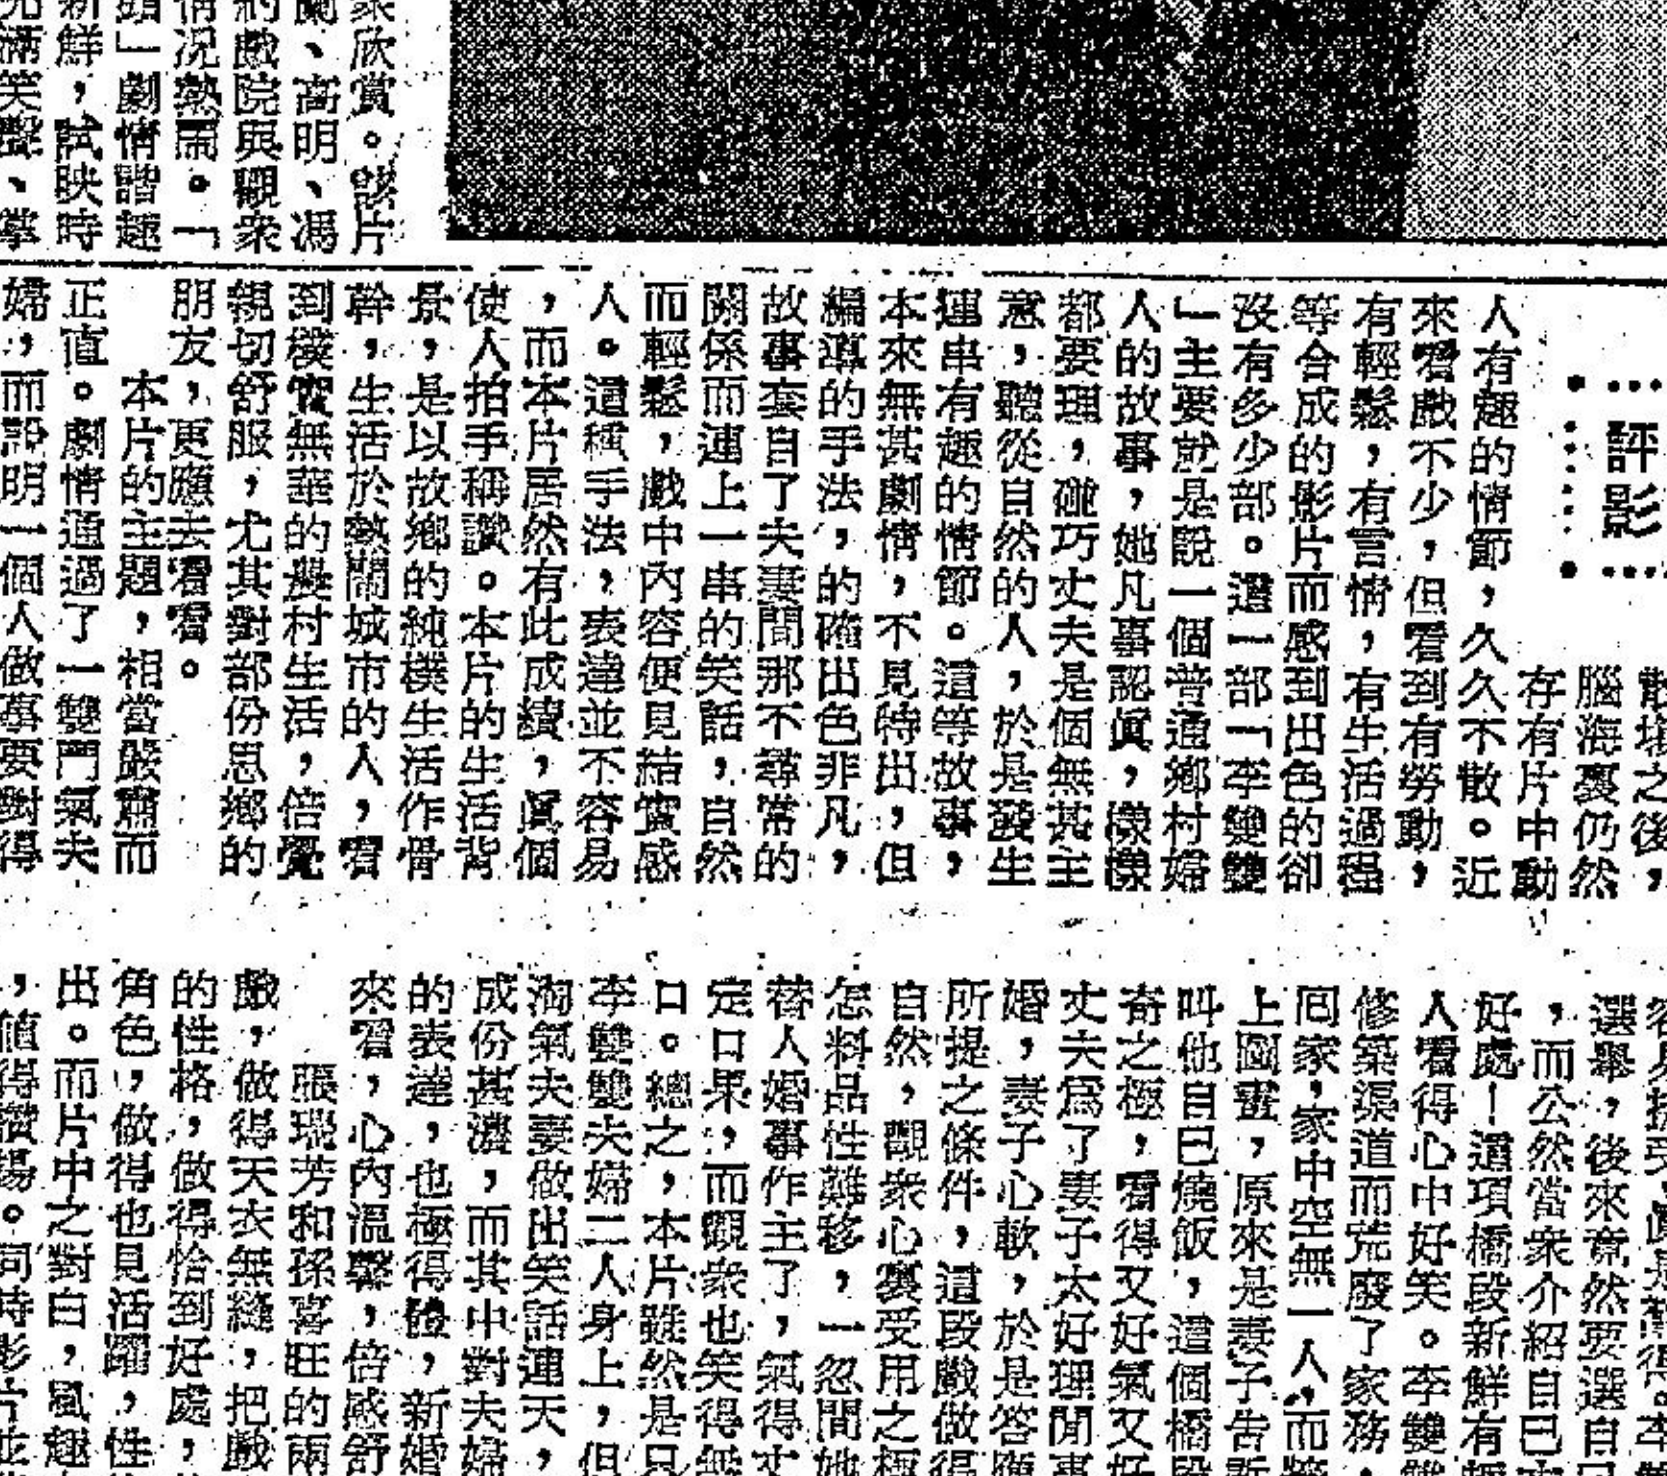 欣賞。該片
、高明、馮
戲院與觀衆
情況熱鬧。「
頭」劇情諧趣
新鮮,試映時
充滿笑聲、掌
評影
散場之後,
腦海裏仍然
存有片中動
人有趣的情節,久久不散。近
來看戲不少,但看到有勞動,
有輕鬆,有言情,有生活過程,
等合成的影片而感到出色的卻
沒有多少部。這一部「李雙雙
」主要就是說一個普通鄉村婦
人的故事,她凡事認眞,樣樣
都要理,碰巧丈夫是個無甚主
意,聽從自然的人,於是發生
連串有趣的情節。這等故事,
本來無甚劇情,不見特出,但
編導的手法,的確出色非凡,
故事套自了夫妻間那不尋常的
關係而連上一串的笑話,自然
而輕鬆,戲中內容便見結實感
人。這種手法,表達並不容易
,而本片居然有此成績,眞個
使人拍手稱讚。本片的生活背
景,是以故鄉的純樸生活作骨
幹,生活於熱鬧城市的人,看
到樸實無華的農村生活,倍覺
親切舒服,尤其對部份思鄉的
朋友,更應去看看。
本片的主題,相當嚴肅而
正直。劇情通過了一雙鬥氣夫
婦,而說明一個人做事要對得
容易接受,眞是難得。
選舉,後來竟然要選自己
,而公然當衆介紹自己
好處!這項橋段新鮮有
人看得心中好笑。李雙
修築渠道而荒廢了家務,
回家,家中空無一人,而
上圖畫,原來是妻子告
叫他自己燒飯,這個橋段
奇之極,看得又好氣又好
丈夫爲了妻子太好理閒事
婚,妻子心軟,於是答應
所提之條件,這段戲做得
自然,觀衆心裏受用之極
怎料品性難移,一忽間她
替人婚事作主了,氣得丈
定口果,而觀衆也笑得無
口。總之,本片雖然是只
李雙雙夫婦二人身上,但
淘氣夫妻做出笑話連天,
成份甚濃,而其中對夫婦
的表達,也極得體,新婚
來看,心內溫馨,倍感舒
張瑞芳和孫喜旺的兩
戲,做得天衣無縫,把戲
的性格,做得恰到好處,
角色,做得也見活躍,性
出。而片中之對白,風趣
,值得讚揚。同時影片並